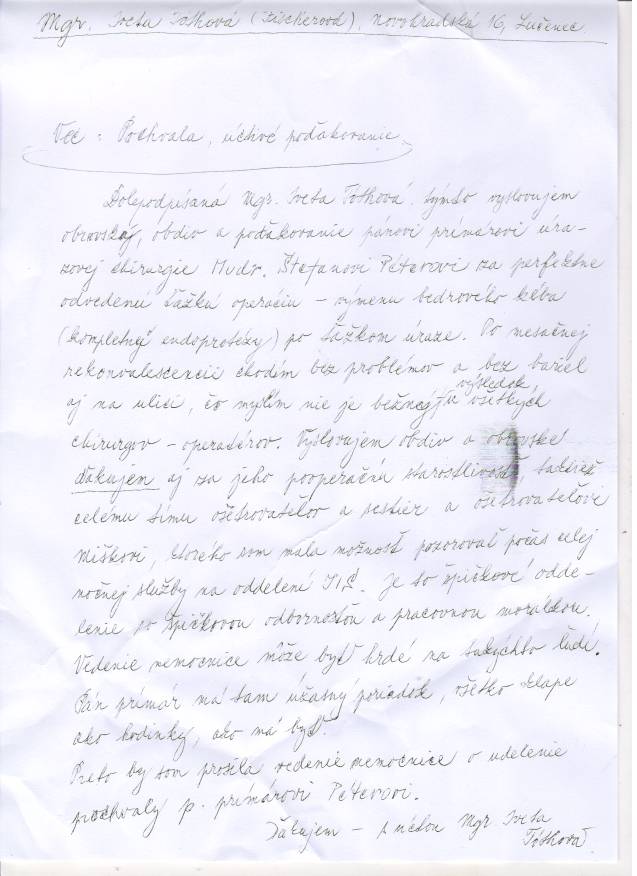 Mgr. Iveta Tóthová (Fischerová), Novohradská 16, Lučenec
Vec: Pochvala, úctivé poďakovanie
Dolepodpísaná Mgr. Iveta Tóthová týmto vyslovujem
obrovský obdiv a poďakovanie pánovi primárovi úra-
zovej chirurgie Mudr. Štefanovi Péterovi za perfektne
odvedenú ťažkú operáciu – výmenu bedrového kĺba
(kompletnej endoprotézy) po ťažkom úraze. Po mesačnej
rekonvalescencii chodím bez problémov a bez bariel
aj na ulici, čo myslím nie je bežný výsledok u všetkých
chirurgov – operatérov. Vyslovujem obdiv a obrovské
ďakujem aj za jeho pooperačnú starostlivosť, taktiež
celému tímu ošetrovateľov a sestier a ošetrovateľovi
Miškovi, ktorého som mala možnosť pozorovať počas celej
nočnej služby na oddelení JIS. Je to špičkové odde-
lenie so špičkovou odbornosťou a pracovnou morálkou.
Vedenie nemocnice môže byť hrdé na takýchto ľudí.
Pán primár má tam úžasný poriadok, všetko klape
ako hodinky, ako má byť!
Preto by som prosila vedenie nemocnice o udelenie
pochvaly p. primárovi Péterovi.
Ďakujem – s úctou Mgr. Iveta
Tóthová